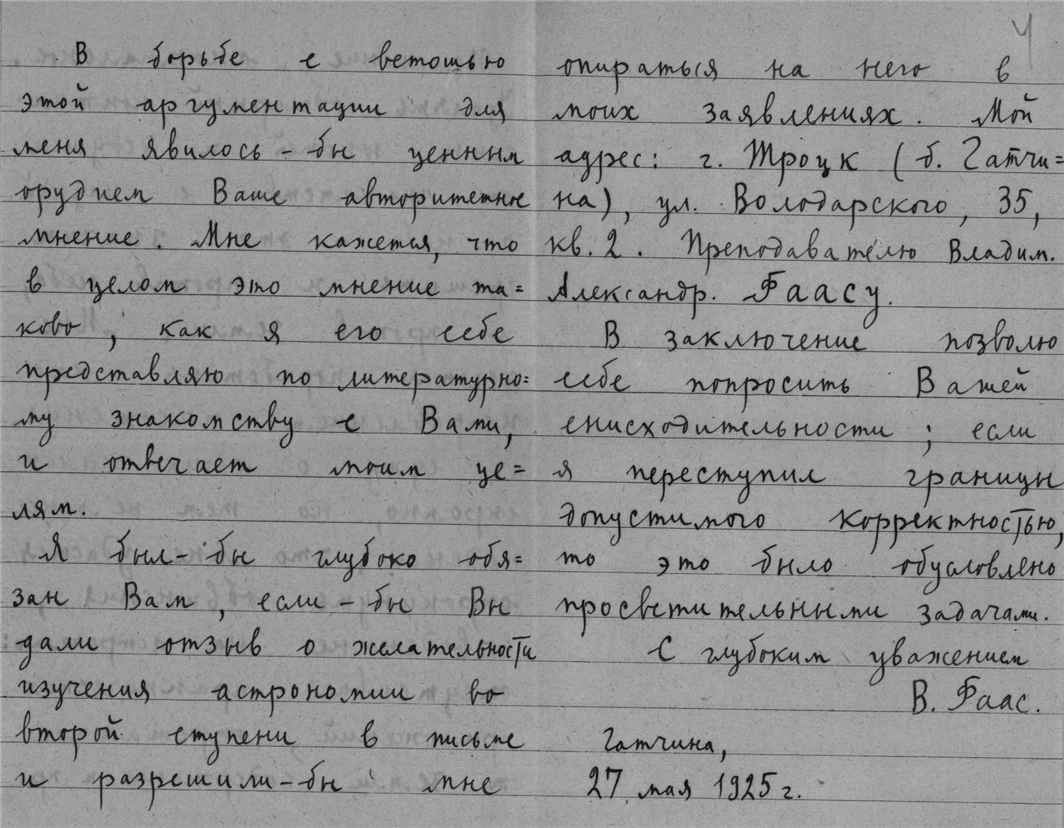 4
В борьбе с ветошью
этой аргументации для
меня явилось-бы ценным
орудием Ваше авторитетное
мнение. Мне кажется, что
в целом это мнение та=
ково, как я его себе
представляю по литературно=
му знакомству с Вами,
и отвечает моим це=
лям.
Я был-бы глубоко обя=
зан Вам, если-бы Вы
дали отзыв о желательности
изучения астрономии во
второй ступени в письме
и разрешили-бы мне
опираться на него в
моих заявлениях. Мой
адрес: г. Троцк (б. Гатчи=
на), ул. Володарского, 35,
кв. 2. Преподавателю Владим.
Александр. Фаасу.
В заключение позволю
себе попросить Вашей
снисходительности; если
я переступил границы
допустимого корректностью,
то это было обусловлено
просветительными задачами.
С глубоким уважением
В. Фаас.
Гатчина,
27 мая 1925 г.